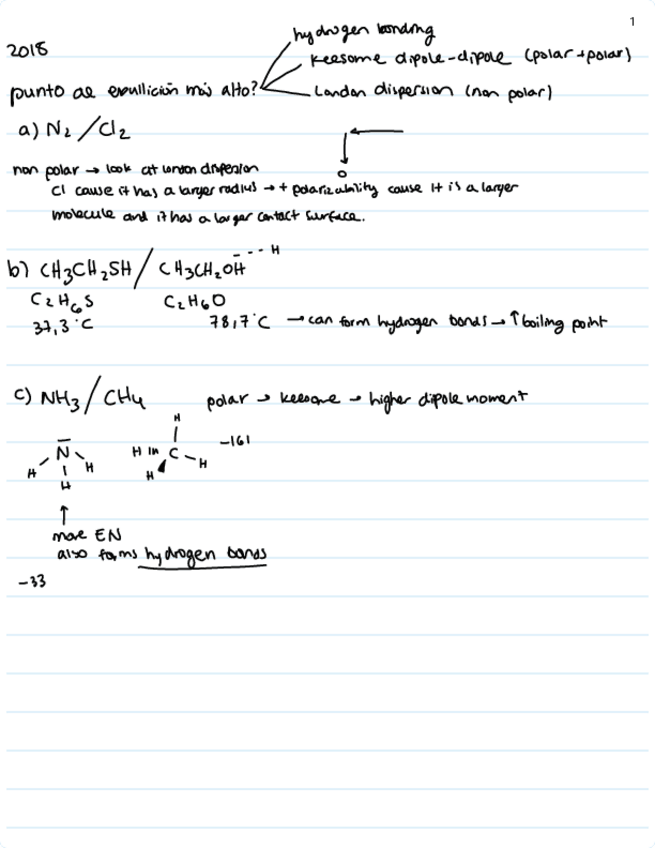 1
2018
hydrogen bonding
Keesome dipole-dipole (polar + polar)
London dispersion (non polar)
punto de ebullición más alto?
a) N2 / Cl2
non polar → look at london dispersion
Cl cause it has a larger radius → + polarizability cause it is a larger
molecule and it has a larger contact surface.
b) CH3CH2SH / CH3CH2OH --- H
C2H6S C2H6O
37,3 °C 78,7 °C → can form hydrogen bonds → ↑ boiling point
c) NH3 / CH4 polar → keesome → higher dipole moment
H
N H C H -161
H H H
H
↑
more EN
also forms hydrogen bonds
-33